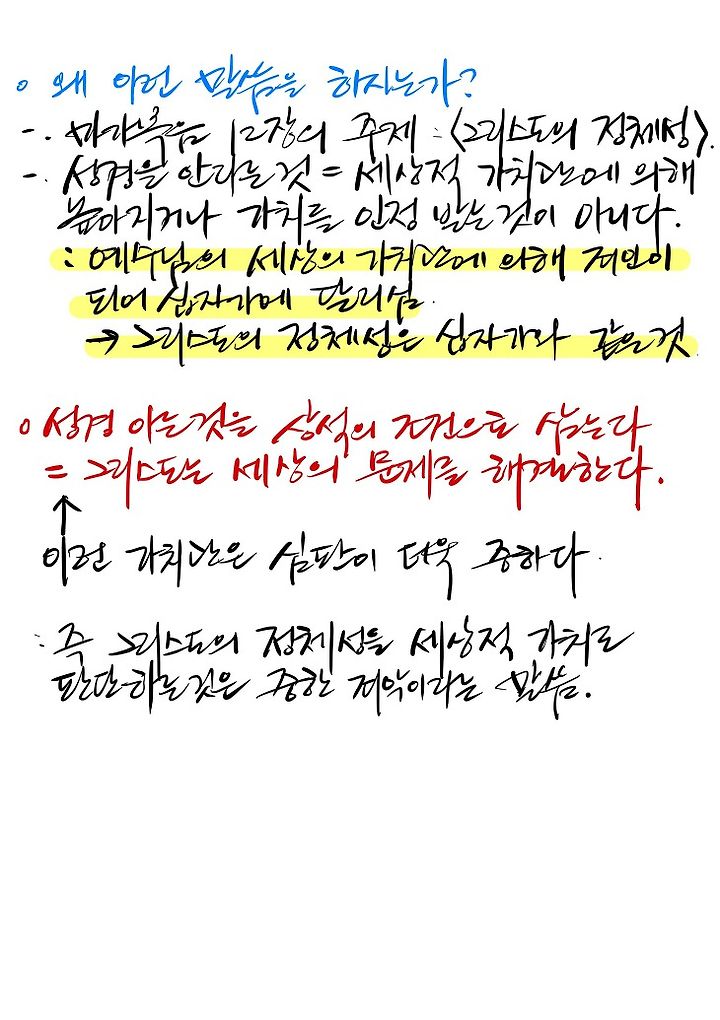 o 왜 이런 말씀을 하시는가?
-. 마가복음 12장의 주제 : <그리스도의 정체성>.
-. 성경을 안다는것 = 세상적 가치관에 의해
높아지거나 가치를 인정 받는것이 아니다.
: 예수님의 세상의 가치관에 의해 죄인이
되어 십자가에 달리심.
→ 그리스도의 정체성은 십자가와 같은것
o 성경 아는것을 상석의 조건으로 삼는다
= 그리스도는 세상의 문제를 해결한다.
↑
이런 가치관은 심판이 더욱 중하다.
: 즉 그리스도의 정체성을 세상적 가치로
판단하는것은 중한 죄악이라는 말씀.